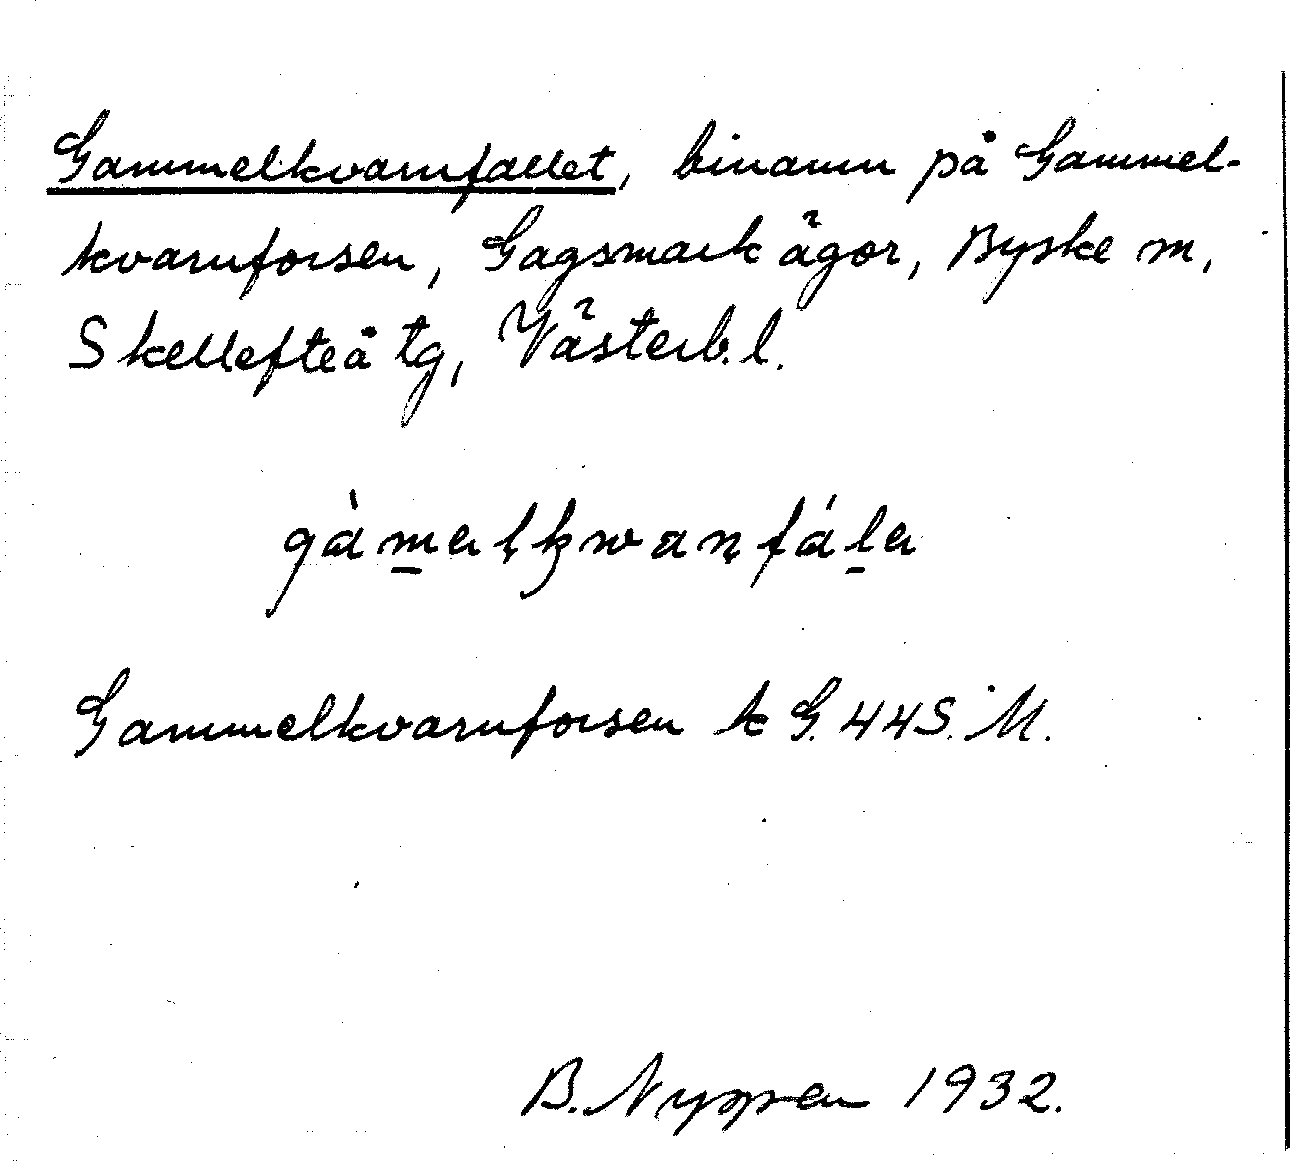 Gammelkvarnfallet, binamn på Gammel-
kvarnforsen, Gagsmark ägor, Byske sn,
Skellefteå tg, Västerb. l.
gàmelkwanfála
Gammelkvarnforsen k G. 445. M.
B. Nyppen 1932.